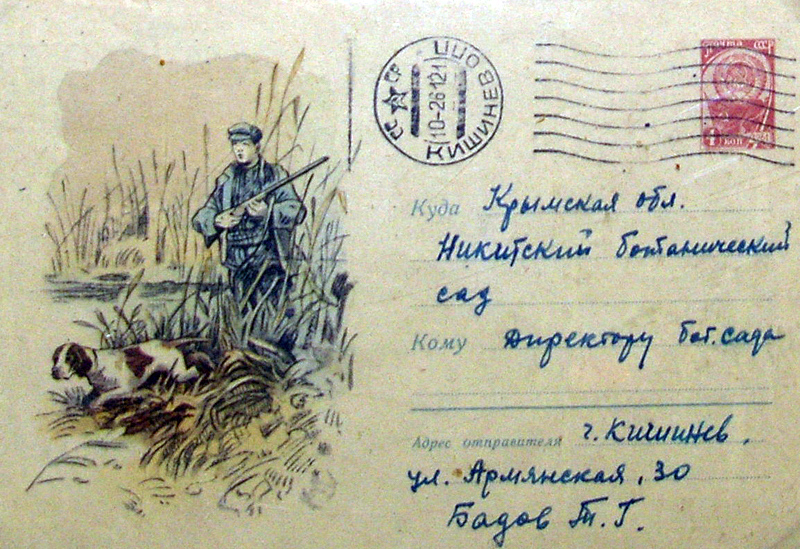 ПОЧТА СССР
4 КОП
СССР
КИШИНЕВ ОПП
10-261261
Куда Крымская обл.
Никитский ботанический
сад
Кому Директору бот. сада
Адрес отправителя г. Кишинев,
ул. Армянская, 30
Бадов Т. Г.